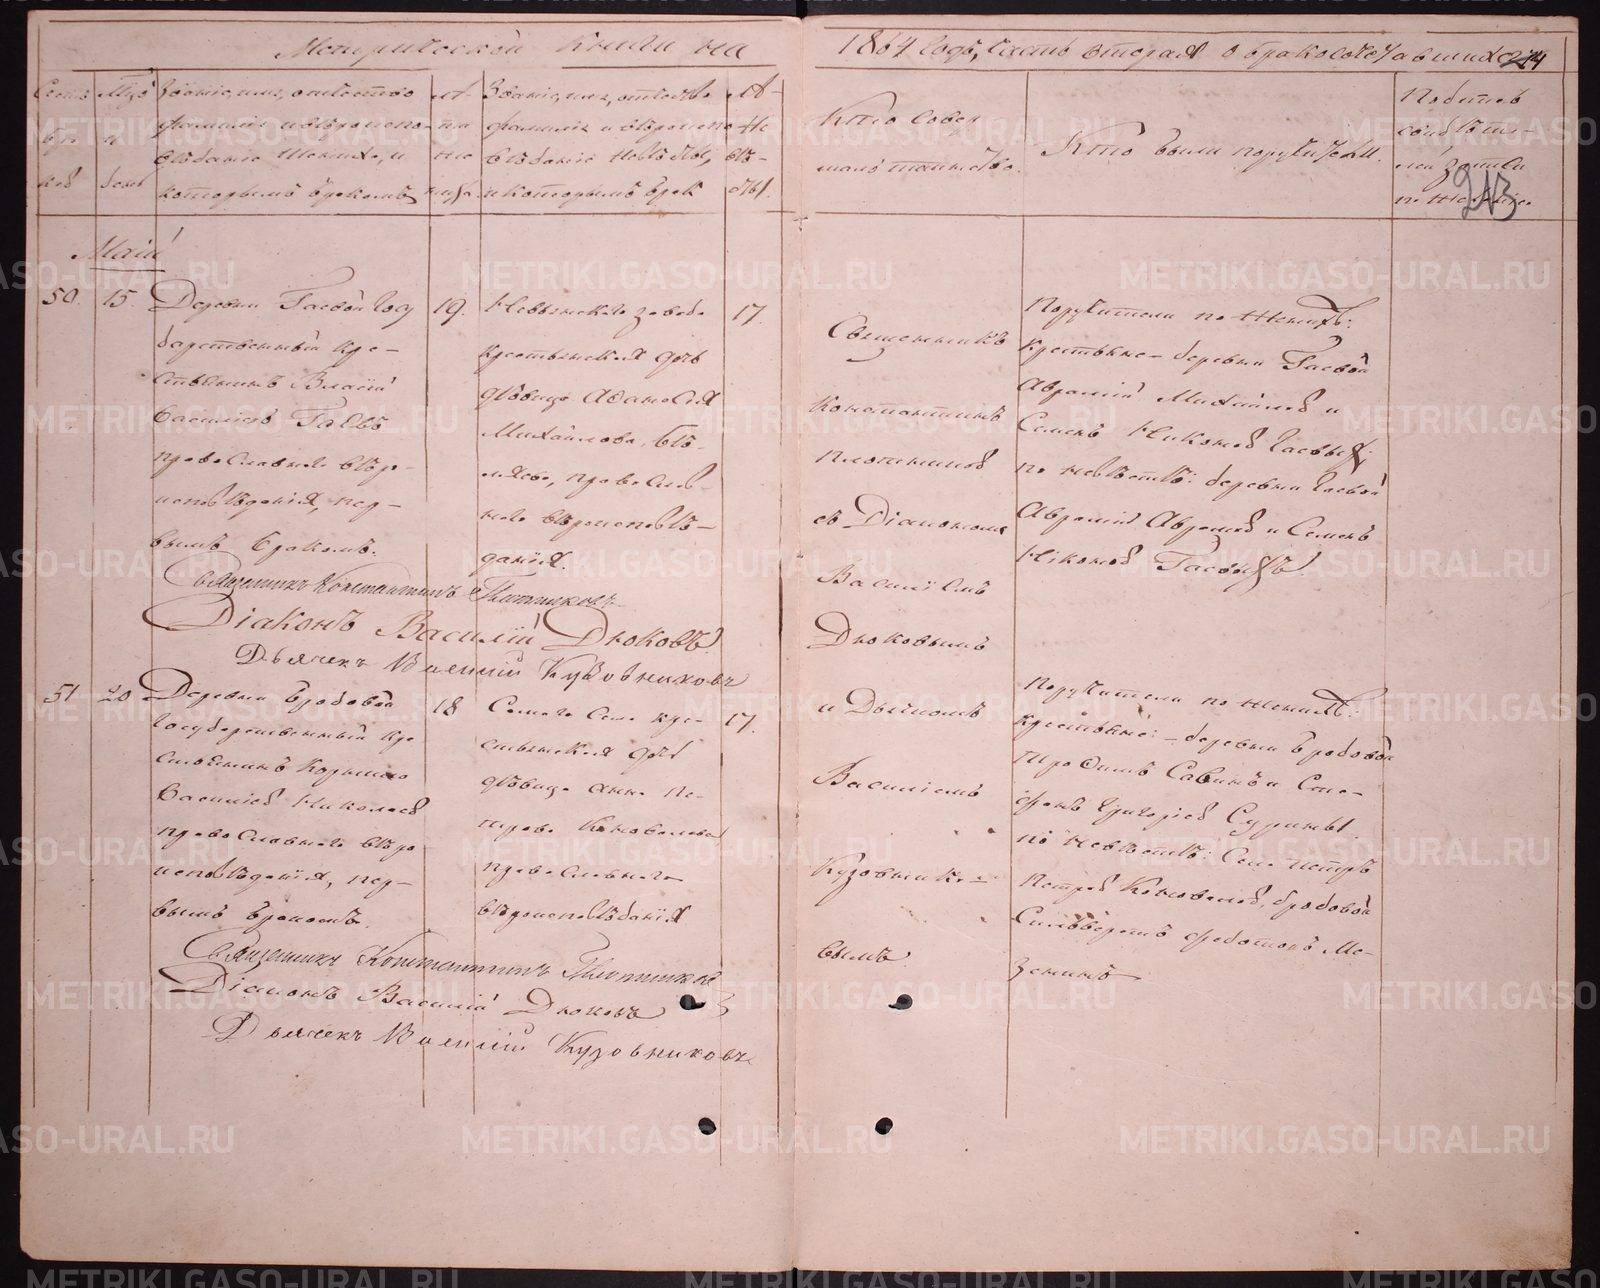 Метрической книги на
1864 годъ, часть вторая о бракосочетавшихся
214
213
Счетъ
бра
ковъ
Мѣс
и
день
Званіе, имя, отчество
фамилія и вѣроиспо-
вѣданіе жениха, и
которымъ бракомъ
лѣ-
та
же
ниха
Званіе, имя, отчество
фамилія и вѣроиспо
вѣданіе невѣсты,
и которымъ брак
лѣ-
не
вѣ-
сты.
Кто совер
шалъ таинство.
Кто были поручители.
Подпись
свидѣте-
лей записи
по желанію.
Маій
50.
15.
Деревни Гаевой госу
дарственный кре-
стьянинъ Власій
Василіевъ Гаевъ
православнаго вѣро-
исповѣданія, пер-
вымъ бракомъ.
19.
Невьянскаго завода
крестьянская дочь
дѣвица Афанасія
Михайлова Бѣ-
ляева, православ-
наго вѣроисповѣ-
данія.
17.
Священникъ
Константинъ
Плотниковъ
съ Діакономъ
Василіемъ
Дюковымъ
и Дьячкомъ
Василіемъ
Кузовнико-
вымъ.
Поручители по женихѣ:
крестьяне - деревни Гаевой
Аврамій Михайловъ и
Семенъ Никоновъ Гаевы;
по невѣстѣ: деревни Гаевой
Аврамій Аврамовъ и Семенъ
Никоновъ Гаевы.
Священникъ Константинъ Плотниковъ
Діаконъ Василій Дюковъ.
Дьячекъ Василій Кузовниковъ
51
20
Деревни Бродовой
государственный кре
стьянинъ Козьма
Василіевъ Николаевъ
православнаго вѣро
исповѣданія, пер-
вымъ бракомъ.
18
Самаго села кре-
стьянская дочь
дѣвица Анна Пе-
трова Коновалова
православнаго
вѣроисповѣданія
17.
Поручители по женихѣ:
крестьяне: - деревни Бродовой
Трофимъ Савинъ и Сте-
фанъ Григорьевъ Сурины
по невѣстѣ: села Петръ
Петровъ Коноваловъ, бродовой
Сильверстъ Федотовъ Ме-
зенинъ
Священникъ Константинъ Плотниковъ
Діаконъ Василій Дюковъ
Дьячекъ Василій Кузовниковъ
METRIKI.GASO-URAL.RU